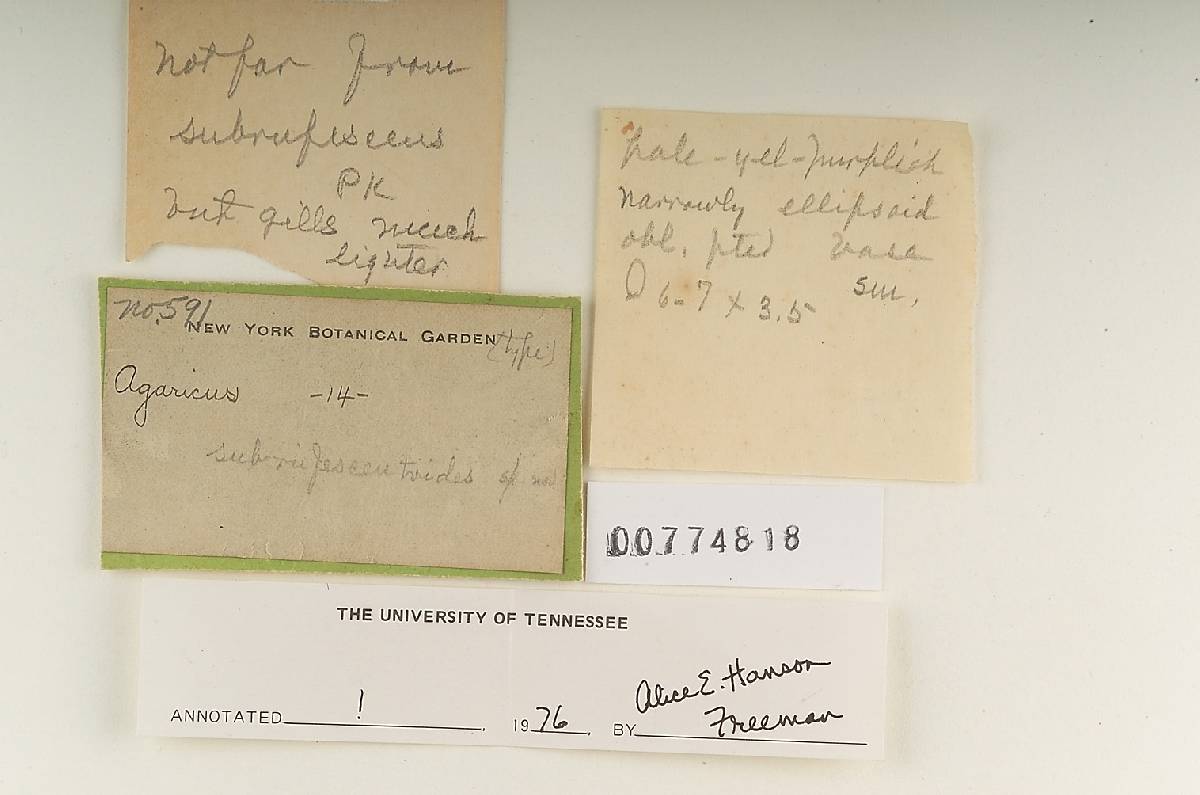 not far from
subrufescens
PK
but gills much
lighter
pale-yel-purplish
narrowly ellipsoid
obl. pted base
sm.
6-7 x 3.5
no. 591
NEW YORK BOTANICAL GARDEN (type)
Agaricus -14-
subrufescentoides sp nov
00774818
THE UNIVERSITY OF TENNESSEE
ANNOTATED ! . 1976. BY Alice E. Hanson
Freeman